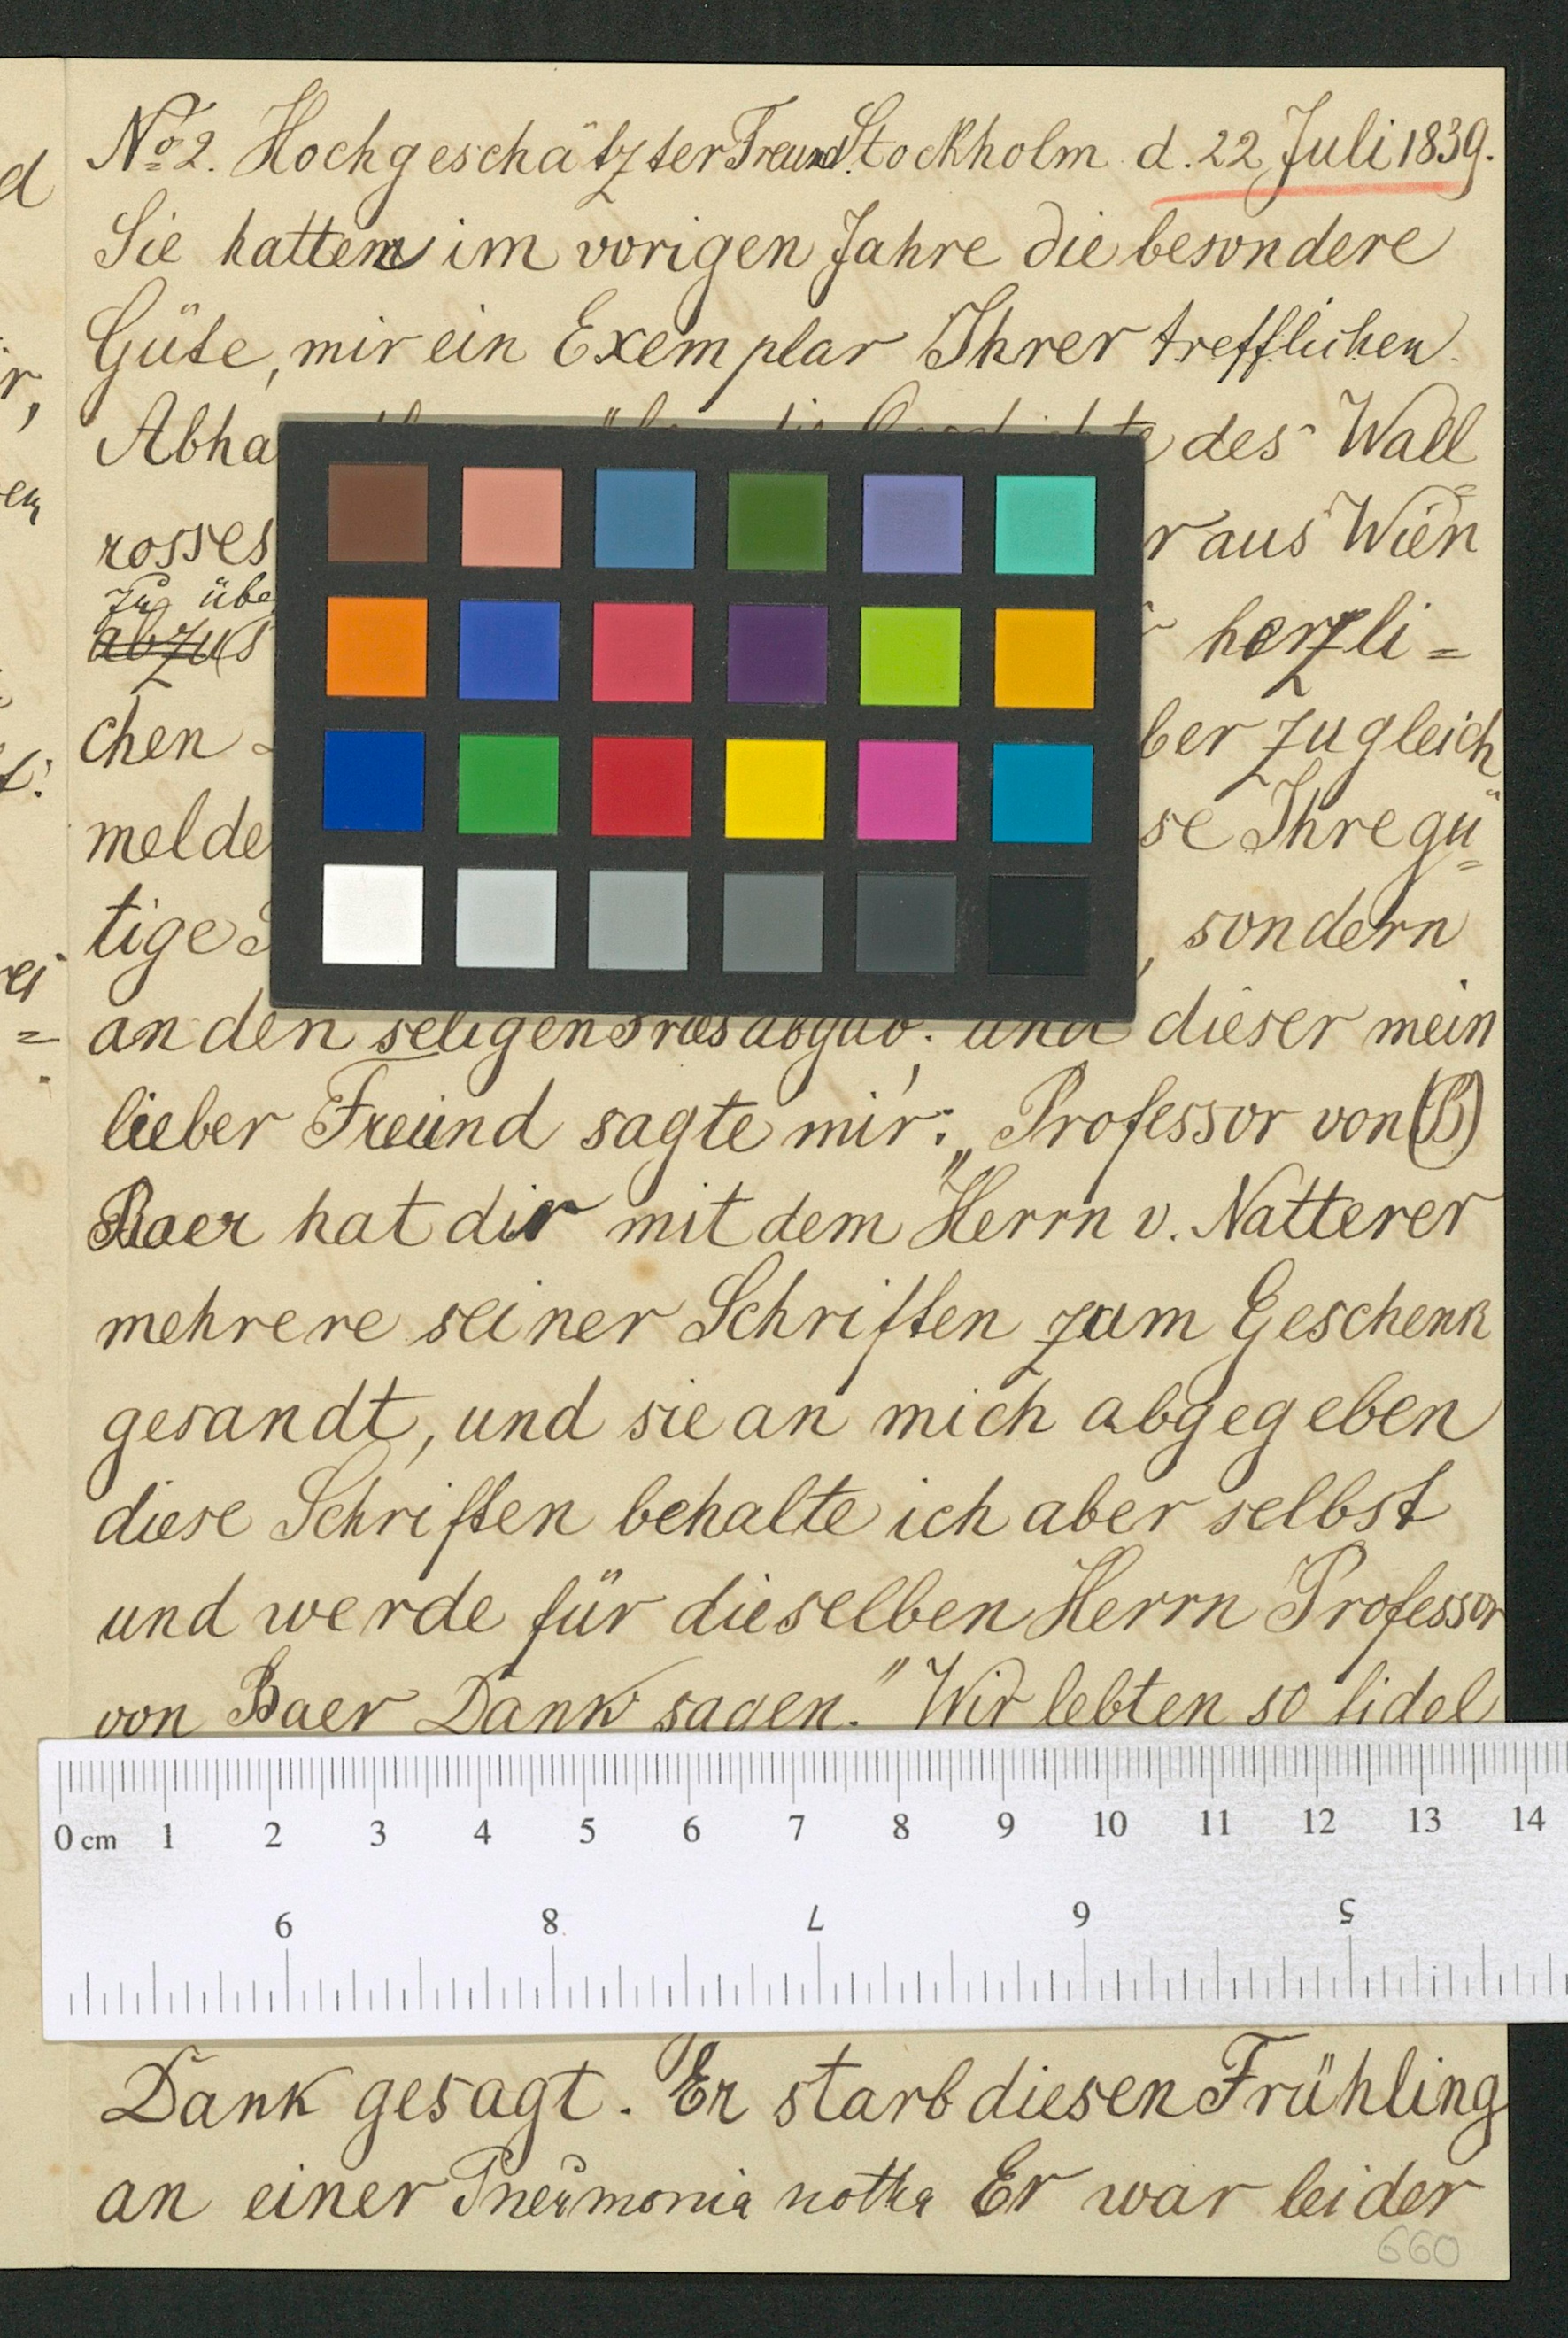 No 2. Hochgeschätzter Freund. Stockholm d. 22 Juli 1839.
Sie hatten im vorigen Jahre die besondere
Güte, mir ein Exemplar Ihrer trefflichen
des Wall
rosses aus Wien
zu
herzli=
chen zugleich
se Ihre gü=
tige , sondern
an den seligen Fries abgab; und dieser mein
lieber Freund sagte mir: „Professor von (B)
Baer hat dir mit dem Herrn v. Natterer
mehrere seiner Schriften zum Geschenk
gesandt, und sie an mich abgegeben
diese Schriften behalte ich aber selbst
und werde für dieselben Herrn Professor
von Baer Dank sagen." Wir lebten so fidel
0 cm 1 2 3 4 5 6 7 8 9 10 11 12 13 14
9 8 7 6 5
Dank gesagt. Er starb diesen Frühling
an einer Pneumonia notha Er war leider
660